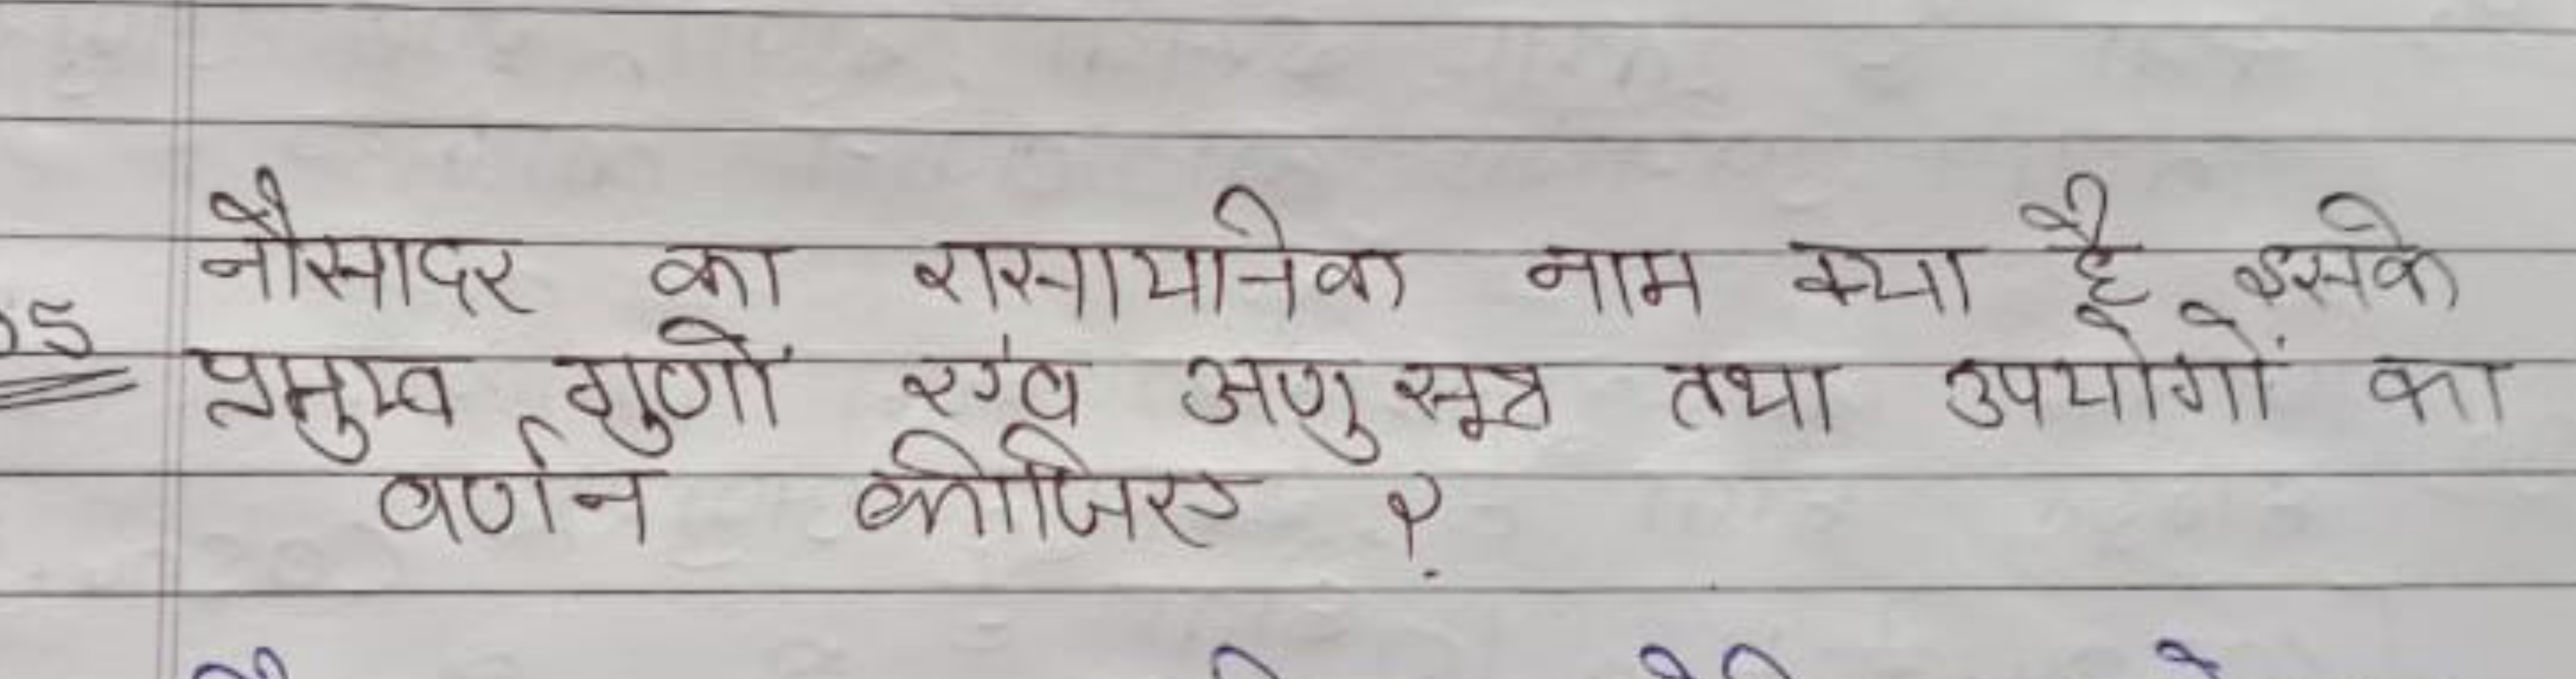 नौसादर का रासायनिक नाम क्या है इसके
05 प्रमुख गुणों एंव अणु सूत्र तथा उपयोगों का
वर्णन कीजिए ?